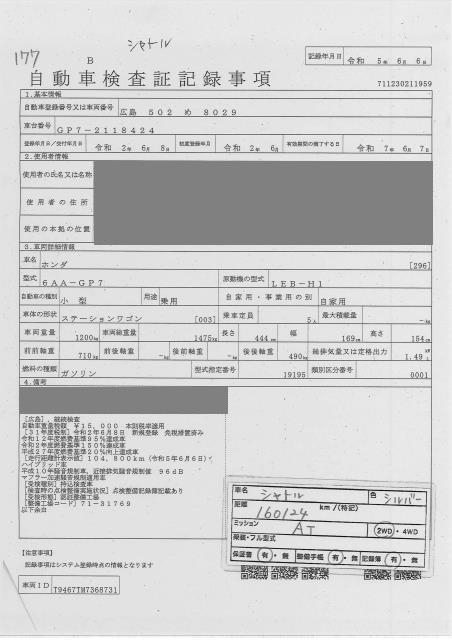 177 B シャトル
記録年月日 令和 5年 6月 6日
自動車検査証記録事項
711230211959
1.基本情報
自動車登録番号又は車両番号 広島 502 め 8029
車台番号 GP7-2118424
登録年月日/交付年月日 令和 2年 6月 8日 初度登録年月 令和 2年 6月 有効期間の満了する日 令和 7年 6月 7日
2.使用者情報
使用者の氏名又は名称
使用者の住所
使用の本拠の位置
3.車両詳細情報
車名 ホンダ [296]
型式 6AA-GP7 原動機の型式 LEB-H1
自動車の種別 小型 用途 乗用 自家用・事業用の別 自家用
車体の形状 ステーションワゴン [003] 乗車定員 5人 最大積載量 -kg
車両重量 1200kg 車両総重量 1475kg 長さ 444cm 幅 169cm 高さ 154cm
前前軸重 710kg 前後軸重 -kg 後前軸重 -kg 後後軸重 490kg 総排気量又は定格出力 1.49
燃料の種類 ガソリン 型式指定番号 19195 類別区分番号 0001
4.備考
[広島], 継続検査
自動車重量税額 ¥15,000 本則税率適用
[31年度税制] 令和2年6月8日 新規登録 免税措置済み
令和12年度燃費基準95%達成車
令和2年度燃費基準150%達成車
平成27年度燃費基準20%向上達成車
[走行距離計表示値] 104,800km (令和5年6月6日)
ハイブリッド車
平成10年騒音規制車, 近接排気騒音規制値 96dB
マフラー加速騒音規制適用車
[受検種別] 持込検査車
[検査時の点検整備実施状況] 点検整備記録簿記載あり
[受検形態] 認証整備工場
[整備工場コード] 71-31769
以下余白
車名 シャトル 色 シルバー
距離 160124 km/(特記)
ミッション AT 2WD・4WD
架装・フル型式
保証書 有・無 整備手帳 有・無 記録簿 有・無
【注意事項】
記録事項はシステム登録時点の情報となります
車両ID T9467TM7368731